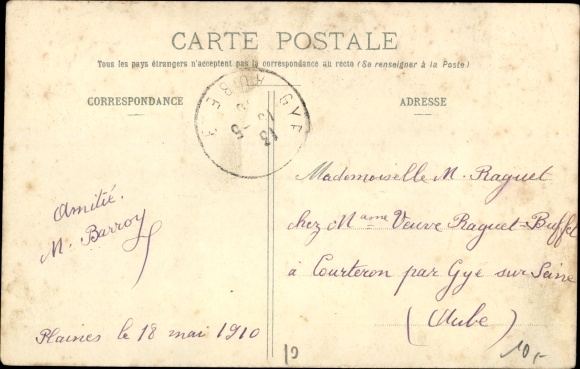 CARTE POSTALE
Tous les pays étrangers n'acceptent pas la correspondance au recto (Se renseigner à la Poste)
CORRESPONDANCE
ADRESSE
GYE
AUBE
Amitié.
M. Barroy
Plaines le 18 mai 1910
Mademoiselle M. Raguet
chez Mame Veuve Raguet-Buffet
à Courteron par Gyé sur Seine
(Aube)
10,-